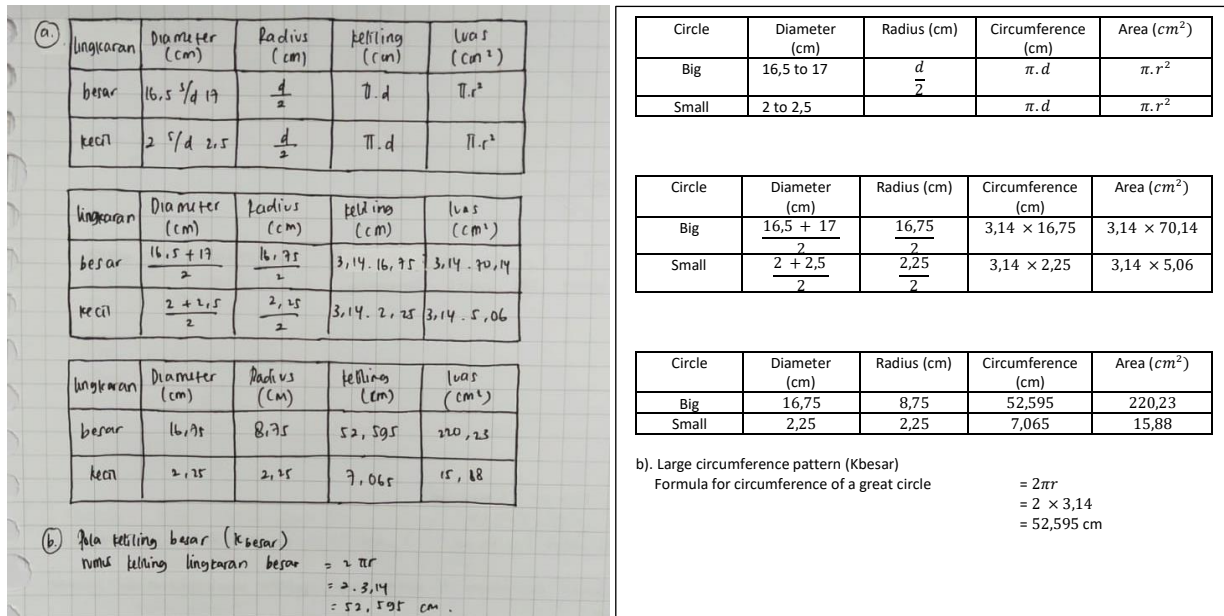 a.
lingkaran | Diameter (cm) | Radius (cm) | keliling (cm) | luas (cm²)
besar | 16,5 s/d 17 | d/2 | π.d | π.r²
kecil | 2 s/d 2,5 | d/2 | π.d | π.r²
lingkaran | Diameter (cm) | Radius (cm) | keliling (cm) | luas (cm²)
besar | 16,5 + 17 / 2 | 16,75 / 2 | 3,14 . 16,75 | 3,14 . 70,14
kecil | 2 + 2,5 / 2 | 2,25 / 2 | 3,14 . 2,25 | 3,14 . 5,06
lingkaran | Diameter (cm) | Radius (cm) | keliling (cm) | luas (cm²)
besar | 16,75 | 8,75 | 52,595 | 220,23
kecil | 2,25 | 2,25 | 7,065 | 15,88
b. Pola keliling besar (Kbesar)
rumus keliling lingkaran besar = 2 πr
= 2 . 3,14
= 52,595 cm.
Circle | Diameter (cm) | Radius (cm) | Circumference (cm) | Area (cm²)
Big | 16,5 to 17 | d/2 | π.d | π.r²
Small | 2 to 2,5 | | π.d | π.r²
Circle | Diameter (cm) | Radius (cm) | Circumference (cm) | Area (cm²)
Big | 16,5 + 17 / 2 | 16,75 / 2 | 3,14 × 16,75 | 3,14 × 70,14
Small | 2 + 2,5 / 2 | 2,25 / 2 | 3,14 × 2,25 | 3,14 × 5,06
Circle | Diameter (cm) | Radius (cm) | Circumference (cm) | Area (cm²)
Big | 16,75 | 8,75 | 52,595 | 220,23
Small | 2,25 | 2,25 | 7,065 | 15,88
b). Large circumference pattern (Kbesar)
Formula for circumference of a great circle = 2πr
= 2 × 3,14
= 52,595 cm